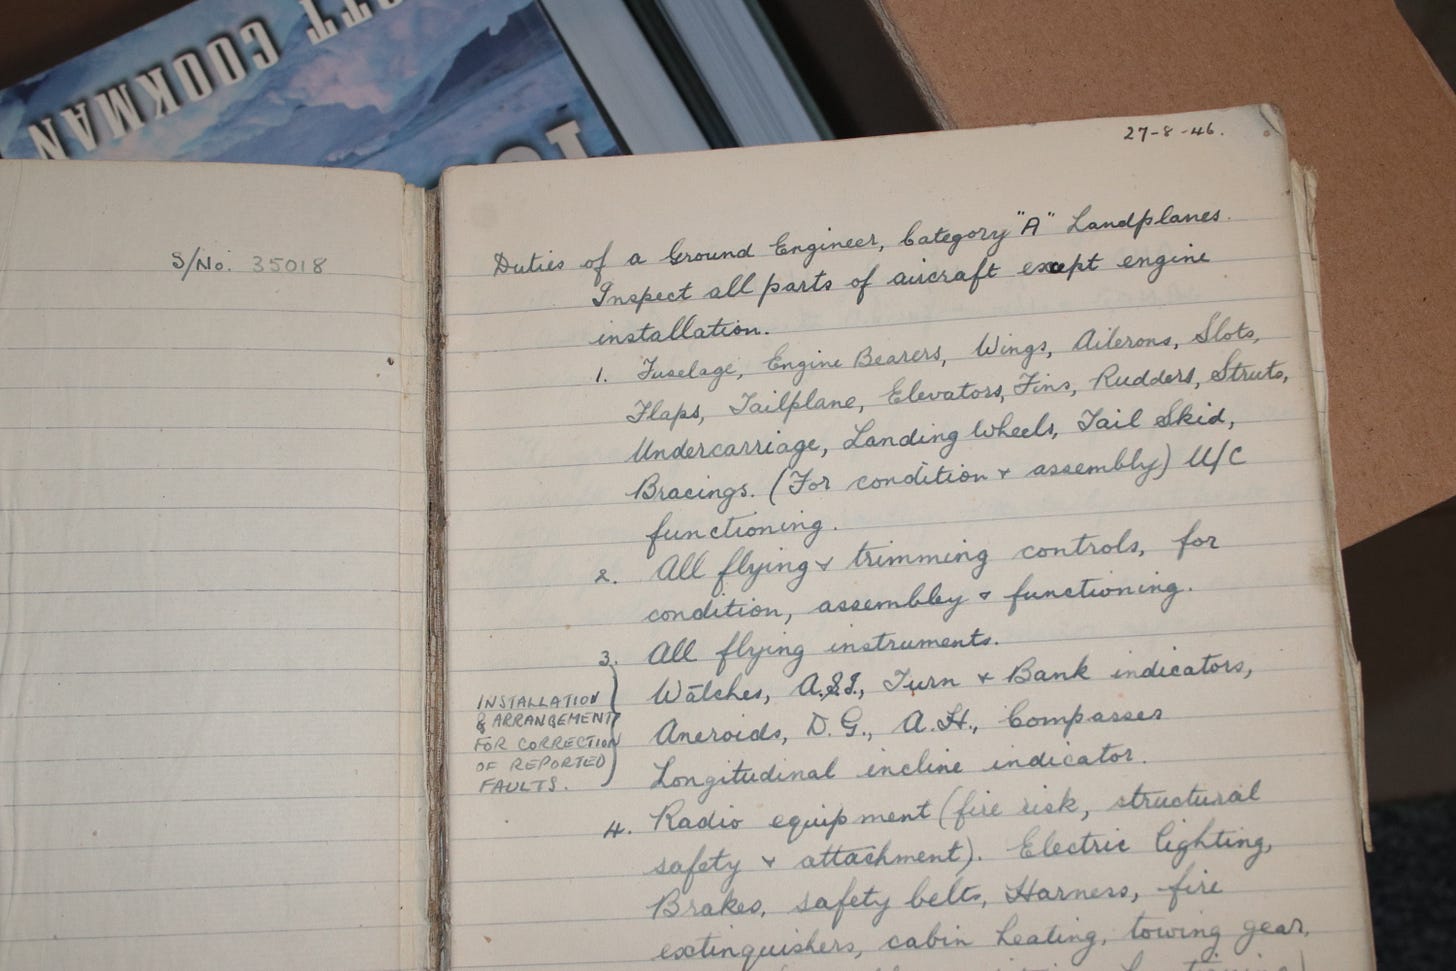 COOKMAN
S/No. 35018
27-8-46.
Duties of a Ground Engineer, Category "A" Landplanes.
Inspect all parts of aircraft except engine
installation.
1. Fuselage, Engine Bearers, Wings, Ailerons, Slots,
Flaps, Tailplane, Elevators, Fins, Rudders, Struts,
Undercarriage, Landing Wheels, Tail Skid,
Bracings. (For condition & assembly) U/C
functioning.
2. All flying & trimming controls, for
condition, assembley & functioning.
3. All flying instruments.
Watches, A.S.I., Turn & Bank indicators,
Aneroids, D.G., A.H., Compasses
Longitudinal incline indicator.
INSTALLATION
& ARRANGEMENT
FOR CORRECTION
OF REPORTED
FAULTS.
4. Radio equipment (fire risk, structural
safety & attachment). Electric lighting,
Brakes, safety belts, Harness, fire
extinguishers, cabin heating, towing gear,